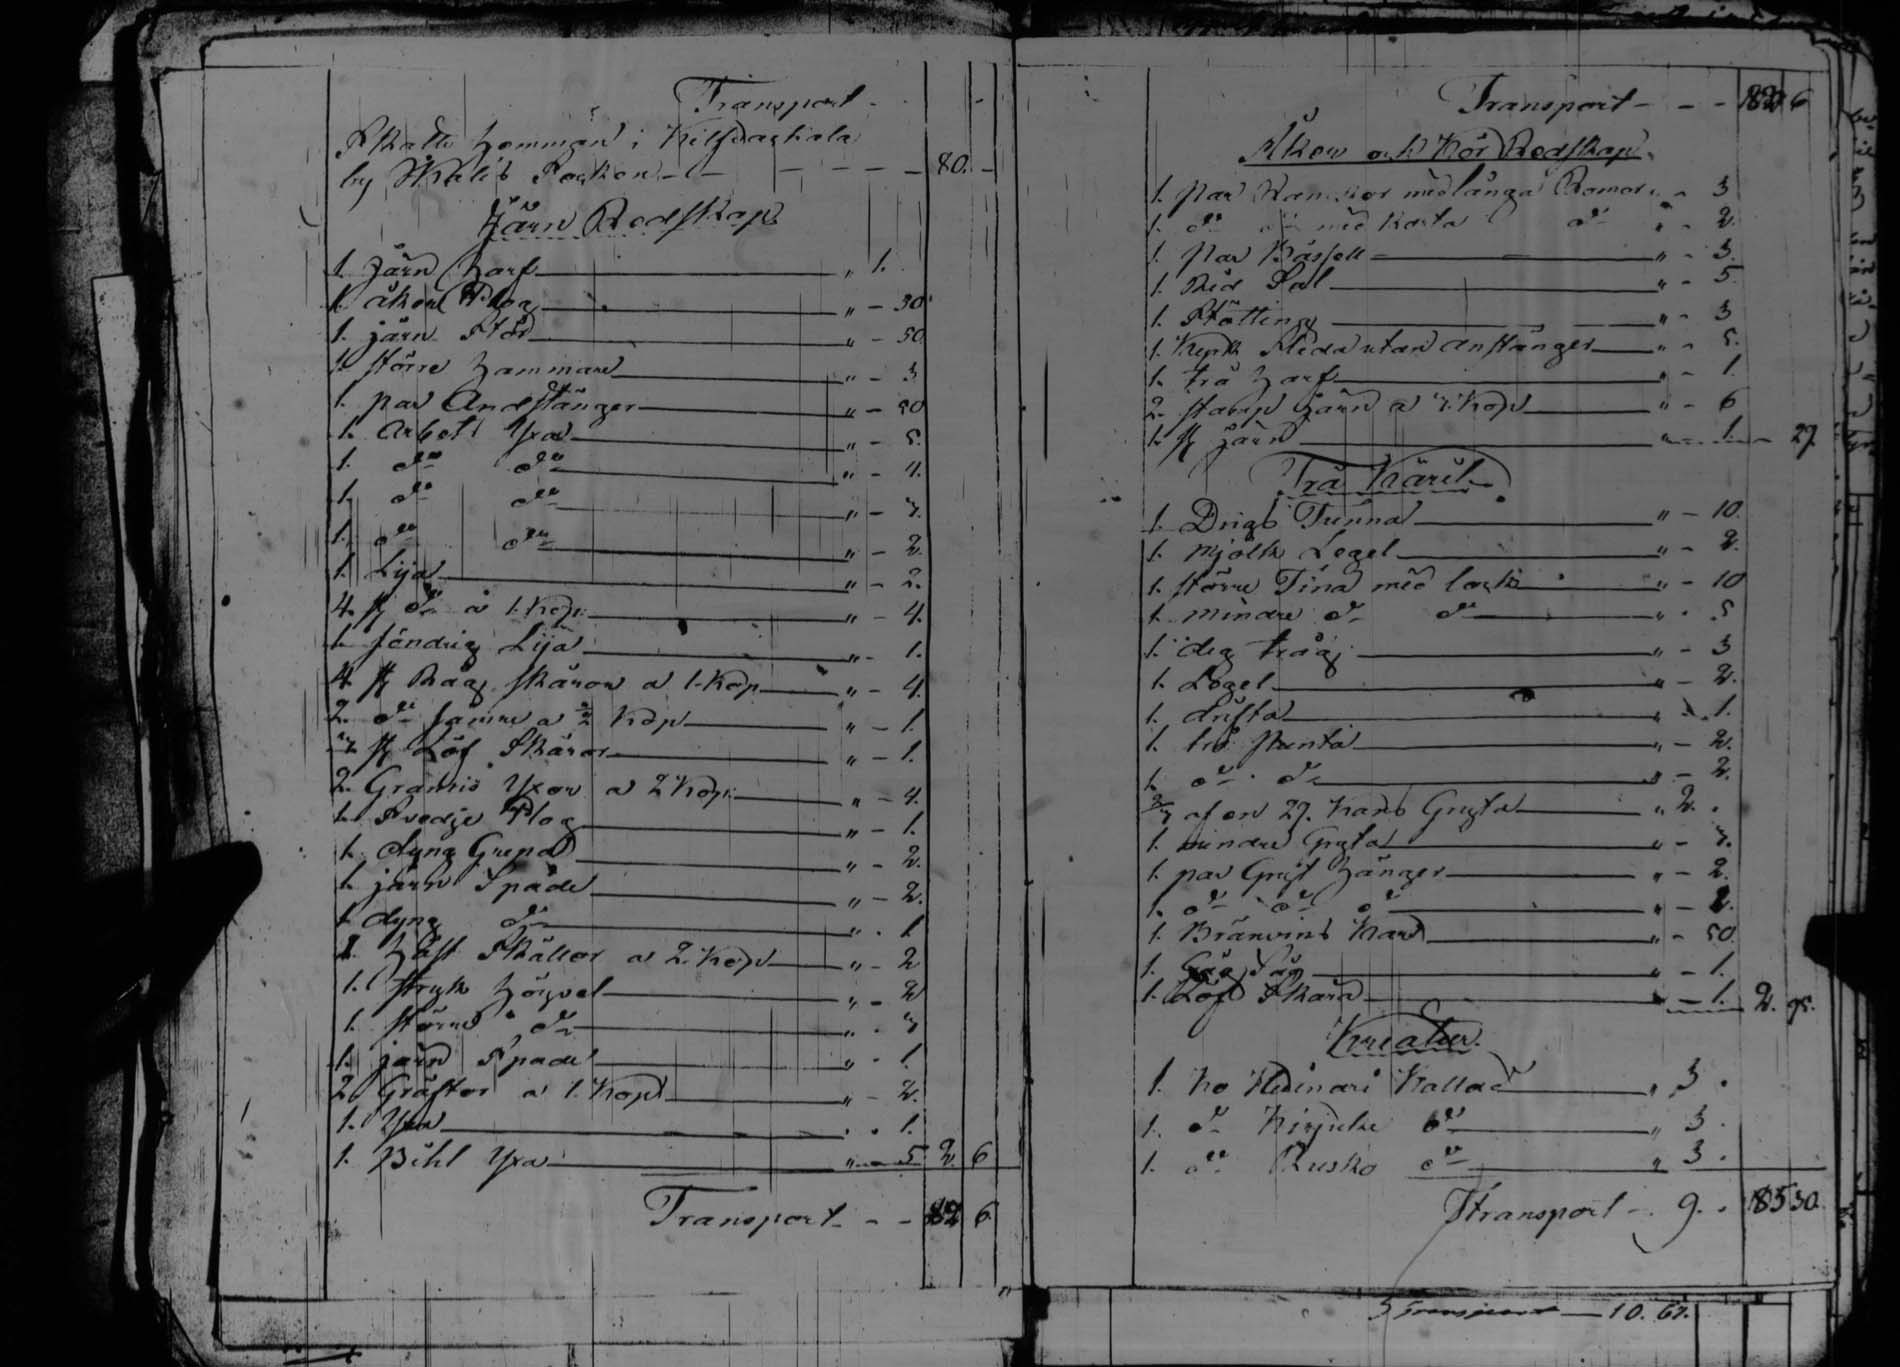 Transport -
Skatte hemman i
by Skatts - - - 80. -
Järn Redskap
1. Järn harf " 1.
1. åker Plog " - 30
1. järn Stör " - 50
1. större hammare " - 3
1. par Andstänger " - 50
1. Arbets Yxa " - 5.
1. do do " - 4.
1. do do " - 3.
1. do do " - 2.
1. Lija " - 2.
4. st do a 1. Kop " - 4.
1. söndrig Lija " - 1.
4. st Råg skäror a 1. Kop " - 4.
2. do samre a ½ Kop " - 1.
st Löf Skäror " - 1.
2. Yxor a 2 Kop " - 4.
1. Svedje Plog " - 1.
1. dyng Grepa " - 2.
1. järn Spade " - 2.
1. dyng do " - 1
1. häst Skällor a 2. Kop " - 2
1. Stryk höfvel " - 2
1. större do " - 3
1. järn Spade " - 1.
2. Gräftor a 1. Kop " - 2.
1. Yxa " - 1.
1. Bihl Yxa " - 5 2 6
Transport - - 82 6
Transport - - - 82 6
Åker och Kör Redskap
1. par med långa Remor " - 3
1. do do med korta do " - 2.
1. par " - 3.
1. Rid Sal " - 5.
1. Stötting " - 3
1. Släda utan anstänger " - 5.
1. trä harf " - 1.
2. stamp Järn a 3. Kop " - 6
1. st järn " - 1. - 27
Trä Käril
1. Drigs Tunna " - 10.
1. mjölk Legel " - 2.
1. större Tina med lock " - 10
1. mindre do do " - 5
1. deg tråg " - 3
1. Legel " - 2.
1. " - 1.
1. brö " - 2.
1. do do " - 2.
af en 27. Kans Gryta " 2. .
1. mindre Gryta " - 3.
1. par Gryt hänger " - 2.
1. do do do " - 2.
1. Bränvins Kar " - 50.
1. Såg " - 1.
1. Löf Skära " - 1. 2. 95.
Kreatur
1. Ko Hedinari Kallad " 3 .
1. do Kirjuke do " 3 .
1. do Rusko do " 3 .
Transport - 9. . 85 30.
Transport — 10. 67.